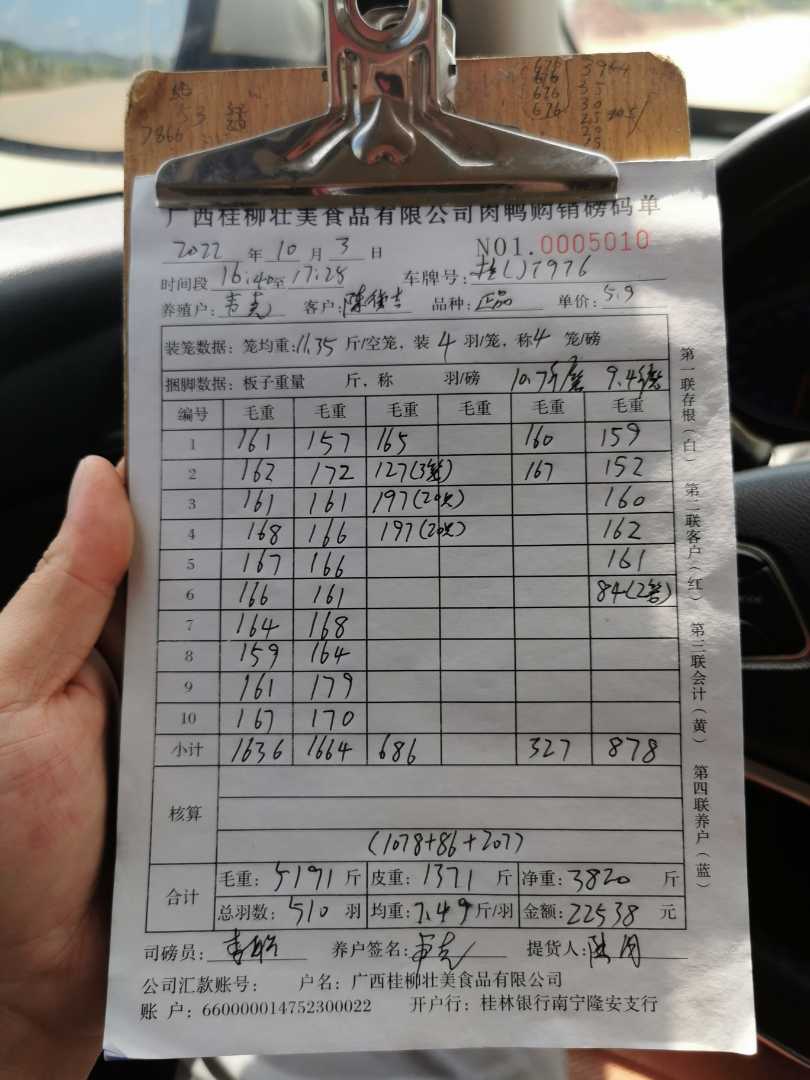 676 3964
676 35
676 30
676 25 10.5
20
15
7866
广西桂柳壮美食品有限公司肉鸭购销磅码单
2022 年 10 月 3 日 NO1.0005010
时间段 16:40至17:25 车牌号: 7976
养殖户: 韦克 客户: 陈 品种: 正品 单价: 5.9
装笼数据: 笼均重: 11.35 斤/空笼, 装 4 羽/笼, 称 4 笼/磅
捆脚数据: 板子重量 斤, 称 羽/磅 10.7斤 9.4
编号 毛重 毛重 毛重 毛重 毛重 毛重
1 161 157 165 160 159
2 162 172 127(3笼) 167 152
3 161 161 197(20只) 160
4 168 166 197(20只) 162
5 167 166 161
6 166 161 84(2笼)
7 164 168
8 159 164
9 161 179
10 167 170
小计 1636 1664 686 327 878
核算
(1078+86+207)
合计
毛重: 5191 斤 皮重: 1371 斤 净重: 3820 斤
总羽数: 510 羽 均重: 7.49 斤/羽 金额: 22538 元
司磅员: 养户签名: 韦克 提货人:
公司汇款账号: 户名: 广西桂柳壮美食品有限公司
账 户: 660000014752300022 开户行: 桂林银行南宁隆安支行
第一联存根(白) 第二联客户(红) 第三联会计(黄) 第四联养户(蓝)